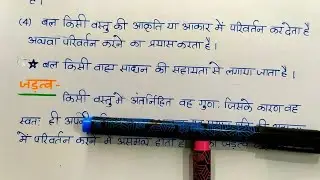 है।
(4) बल किसी वस्तु की आकृति या आकार में परिवर्तन कर देता है
अथवा परिवर्तन करने का प्रयास करता है।
★ बल किसी बाह्य साधन की सहायता से लगाया जाता है।
जड़त्व-
किसी वस्तु में अंतर्निहित वह गुण, जिसके कारण वह
स्वतः ही अपनी
में परिवर्तन करने में असमर्थ होता है